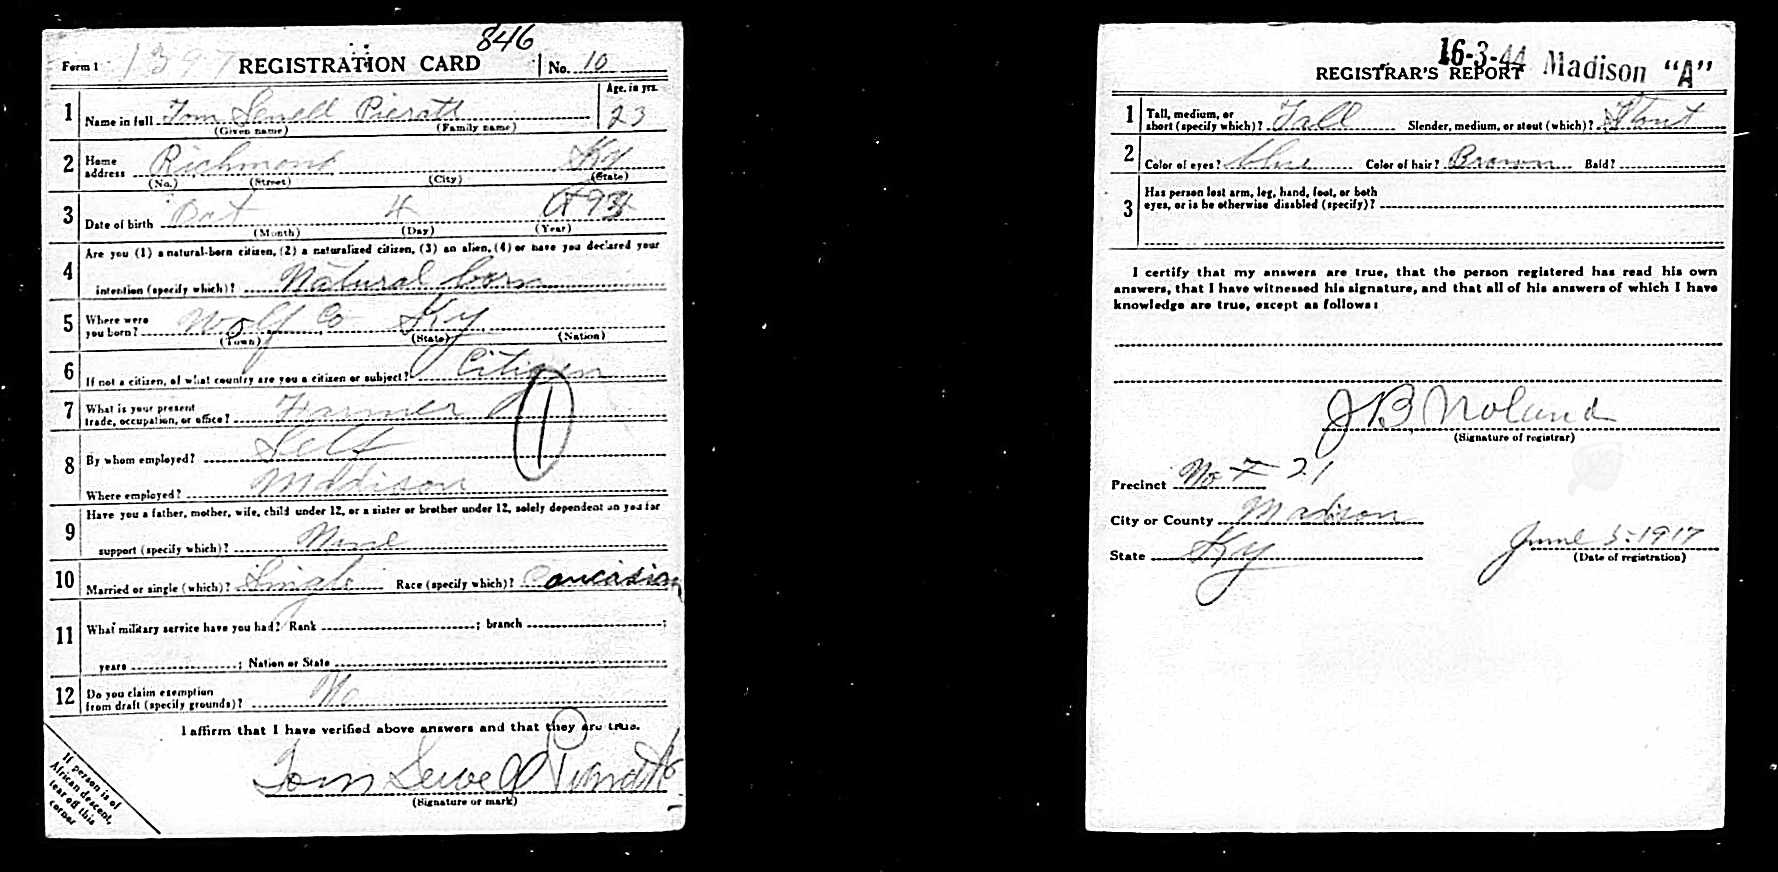 846
Form 1 1397 REGISTRATION CARD No. 10
Age, in yrs.
1 Name in full Tom Sewell 23
(Given name) (Family name)
2 Home address Richmond Ky
(No.) (Street) (City) (State)
3 Date of birth 4
(Month) (Day) (Year)
4 Are you (1) a natural-born citizen, (2) a naturalized citizen, (3) an alien, (4) or have you declared your
intention (specify which)? Natural born
5 Where were you born? Wolf Co Ky
(Town) (State) (Nation)
6 If not a citizen, of what country are you a citizen or subject? Citizen
7 What is your present trade, occupation, or office? Farmer 1
8 By whom employed? Self
Where employed? Maddison
9 Have you a father, mother, wife, child under 12, or a sister or brother under 12, solely dependent on you for
support (specify which)? None
10 Married or single (which)? Single Race (specify which)? Caucasian
11 What military service have you had? Rank ; branch ;
years ; Nation or State
12 Do you claim exemption from draft (specify grounds)? No
I affirm that I have verified above answers and that they are true.
Tom Sewell
(Signature or mark)
If person is of
African descent,
tear off this
corner
16-3-44 Madison "A"
REGISTRAR'S REPORT
1 Tall, medium, or short (specify which)? Tall Slender, medium, or stout (which)? Stout
2 Color of eyes? blue Color of hair? Brown Bald?
3 Has person lost arm, leg, hand, foot, or both
eyes, or is he otherwise disabled (specify)?
I certify that my answers are true, that the person registered has read his own
answers, that I have witnessed his signature, and that all of his answers of which I have
knowledge are true, except as follows:
J B Noland
(Signature of registrar)
Precinct No 21
City or County Madison
State Ky June 5-1917
(Date of registration)